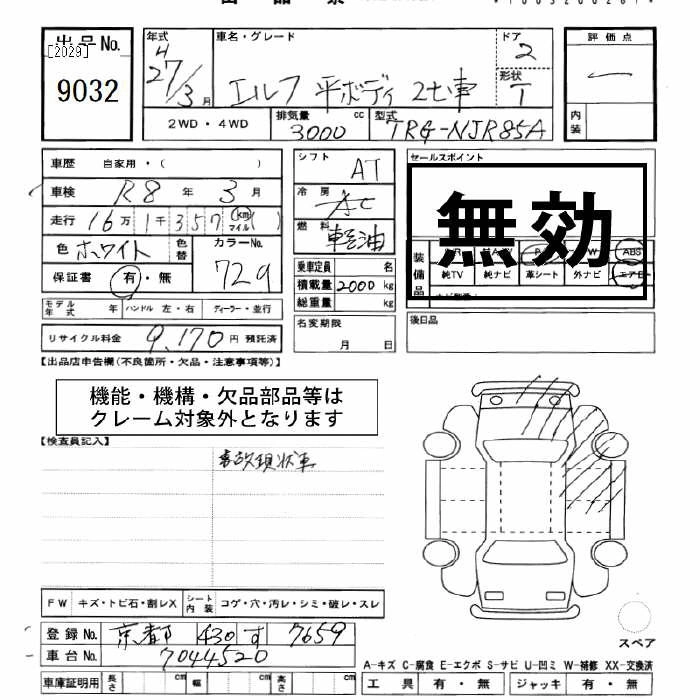 出品No.
[2029]
9032
年式
H
27/3月
車名・グレード
エルフ 平ボディ 2t車
ドア
2
形状
T
評価点
一
内装
2WD・4WD
排気量
3000 cc
型式
TRG-NJR85A
車歴 自家用・( )
車検 R8年 3月
走行 16万1千357 (km マイル)( )
色 ホワイト
色替
カラーNo.
729
保証書 有・無
モデル年式 年
ハンドル 左・右
ディーラー・並行
リサイクル料金 9,170円 預託済
シフト
AT
冷房
AC
燃料
軽油
乗車定員 名
積載量 2000 kg
総重量 kg
名変期限
月 日
セールスポイント
無効
装備品
ABS
純TV 純ナビ 革シート 外ナビ エアB
後日品
【出品店申告欄(不良箇所・欠品・注意事項等)】
機能・機構・欠品部品等は
クレーム対象外となります
【検査員記入】
事故現状車
FW キズ・トビ石・割レX
シート内装 コゲ・穴・汚レ・シミ・破レ・スレ
登録No. 京都 430 す 7659
車台No. 7044520
車庫証明用 長さ cm 幅 cm 高さ cm
スペア
A-キズ C-腐食 E-エクボ S-サビ U-凹ミ W-補修 XX-交換済
工具 有・無 ジャッキ 有・無